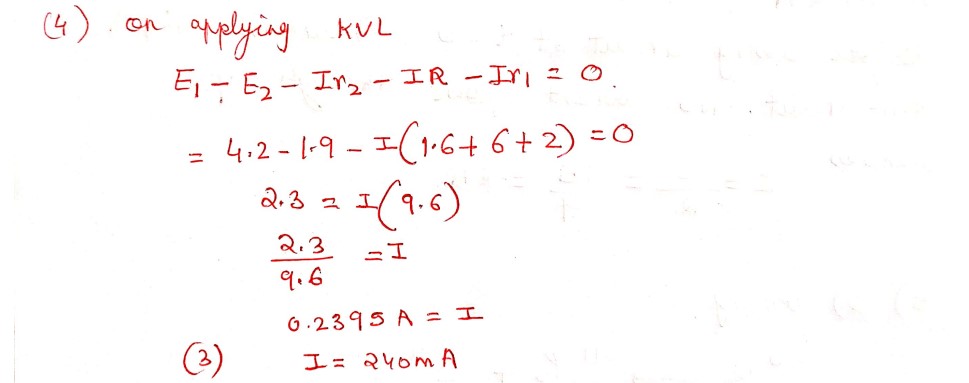 (4) . on applying KVL
E₁ - E₂ - Ir₂ - IR - Ir₁ = 0.
= 4.2 - 1.9 - I(1.6 + 6 + 2) = 0
2.3 = I(9.6)
2.3/9.6 = I
0.2395 A = I
(3) I = 240mA